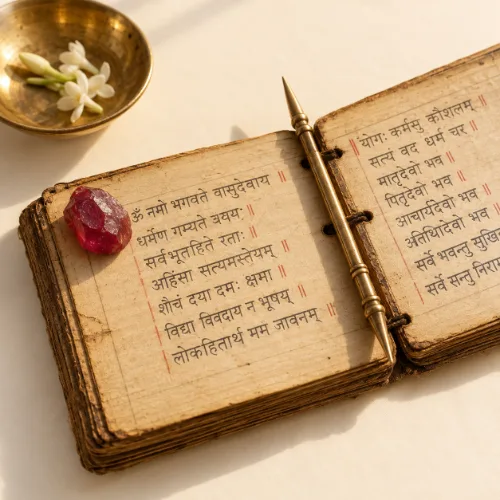 ॐ नमो भगवते वासुदेवाय
धर्मेण गम्यते त्रयः ॥
सर्वभूतहिते रताः ॥
अहिंसा सत्यमस्तेयम् ॥
शौचं दया दमः क्षमा ॥
विद्या विवदाय न भूषय् ॥
लोकहितार्थ मम जावनम् ॥
॥ योगः कर्मसु कौशलम् ॥
सत्यं वद धर्म चर ॥
मातृदेवो भव ॥
पितृदेवो भव ॥
आचार्यदेवो भव ॥
अतिथिदेवो भव ॥
सर्वे भवन्तु
सर्वे सन्तु